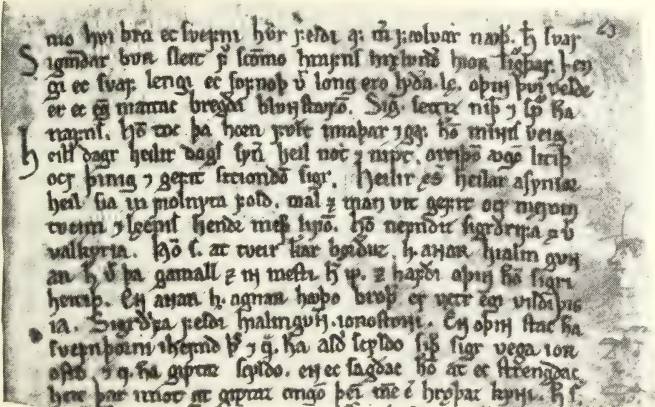 nio hvi bra ec svefni hvr feldi af m fꜹlvar nꜹþ. h̄ svar 23
Sigmdar bvr sleit f scōmo hrafns hrælvnd hior sigþar. len
gi ec svaf lengi ec sofnoþ v long ero lyda lę. oþin þvi veldr
er ec ei mattac bregda blvnstafō. Sig. settiz niþ ⁊ sp ha
nafns. hō toc þa horn fvlt miaþar ⁊ gaf hō minnis veig
heill dagr heilir dags synir heil not ⁊ nipt. oreiþō ꜹgō litiþ
ocr þinig ⁊ gefit sitiondō sigr. Heilir ęs heilar asynior
heil sia in fiolnyta fold. mal ⁊ man vit gefit ocr męrom
tveim ⁊ lęcnis hendr meþ lifō. hō nefndiz sigrdrifa ⁊ v
valkyria. hō s. at tveir kgar bꜹrduz. h. anar hialm gvn
an h v þa gamall ⁊ in mesti h m̄. ⁊ hafdi oþin hō sigri
heitiþ. en anar h. agnarr hꜹþo broþ er vetr engi vildi þig
ia. Sigrdrifa feldi hialmgvn. i orrostoni. en oþin stac ha
svefnþorni i hefnd þ ⁊ q. ha aldri scyldo siþ sigr vega i or
osto ⁊ q. ha giptaz scyldo. en ec sagdac hō at ec strengdac
heit þar i mot at giptaz ongō þeim m̄ e hrędaz kyni. h s.